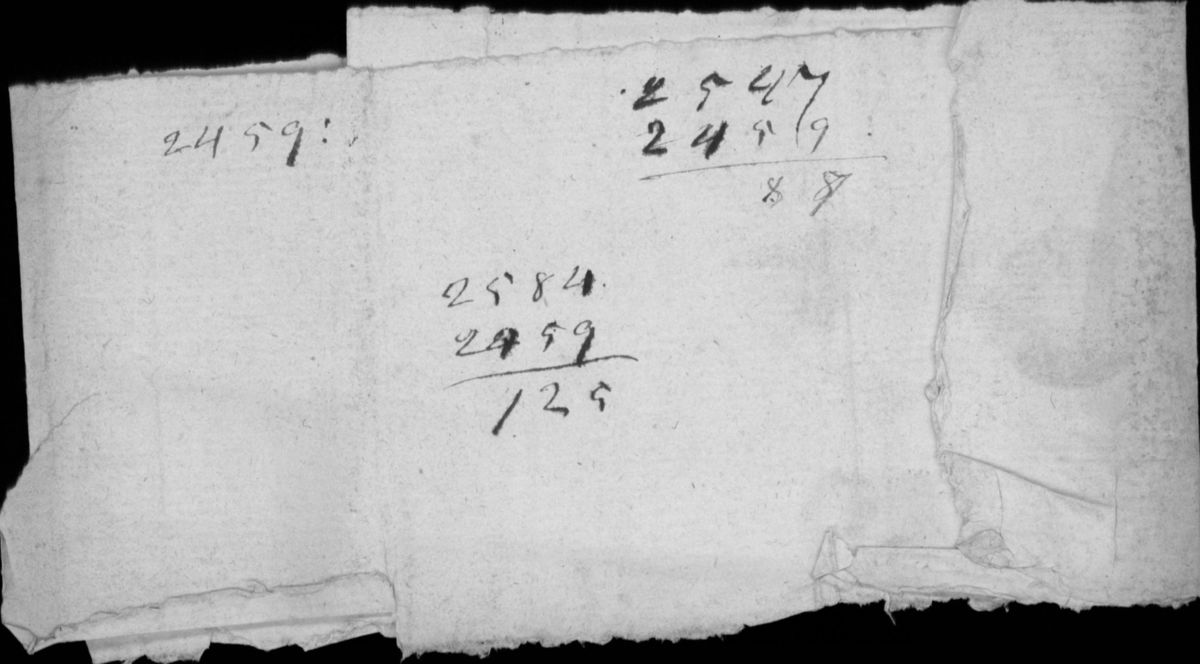 2459:
2547
2459
88
2584
2459
125